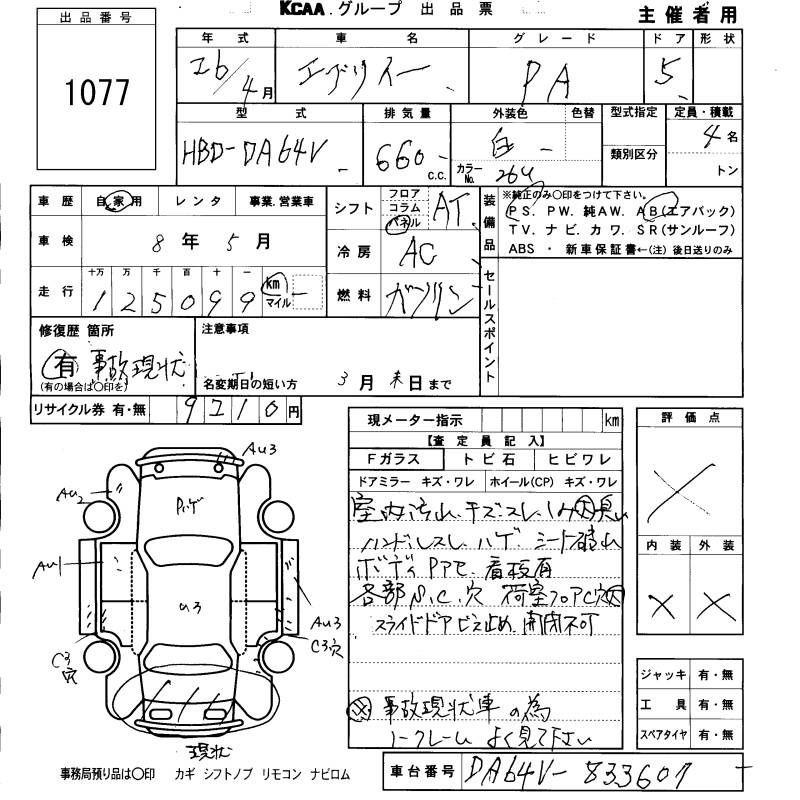 KCAA.グループ 出品票
主催者用
出品番号
1077
年式 車名 グレード ドア 形状
26/4月 エブリイ PA 5
型式 排気量 外装色 色替 型式指定 定員・積載
HBD-DA64V 660 c.c. 白 カラーNo. 26U 類別区分 4名
トン
車歴 自家用 レンタ 事業.営業車
車検 8年5月
走行 十万 万 千 百 十 一
125099 km マイル
シフト フロア コラム パネル AT
冷房 AC
燃料 ガソリン
装備品
※純正のみ〇印をつけて下さい。
PS. PW. 純AW. AB(エアバック)
TV. ナビ. カワ. SR(サンルーフ)
ABS ・ 新車保証書←(注)後日送りのみ
セールスポイント
修復歴 箇所
有 事故現状
(有の場合は〇印を)
注意事項
名変期日の短い方 3月末日まで
リサイクル券 有・無 9210円
現メーター指示 km
【査定員記入】
Fガラス トビ石 ヒビワレ
ドアミラー キズ・ワレ ホイール(CP) キズ・ワレ
室内汚れ.キズ.スレ.シミ
ハンドルスレ ハゲ シート破れ
ボディ
各部 S.C.穴 荷室フロアC穴
スライドドアビス止め 開閉不可
※ 事故現状車の為
ノークレーム よく見て下さい
評価点
×
内装 外装
× ×
ジャッキ 有・無
工具 有・無
スペアタイヤ 有・無
AU3
AU2
ハゲ
AU1
U3
AU3
C3穴
C3穴
現状
事務局預り品は〇印 カギ シフトノブ リモコン ナビロム
車台番号 DA64V-833607